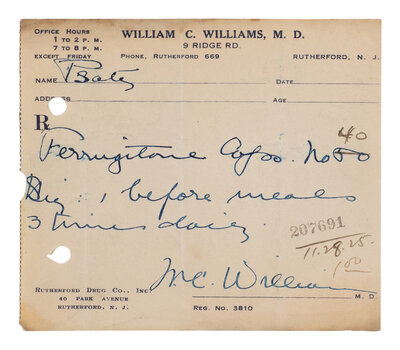 OFFICE HOURS
1 TO 2 P. M.
7 TO 8 P. M.
EXCEPT FRIDAY
WILLIAM C. WILLIAMS, M. D.
9 RIDGE RD.
PHONE, RUTHERFORD 669
RUTHERFORD, N. J.
NAME Bates
DATE
ADDRESS
AGE
℞
40
No 50
Sig: 1 before meals
3 times daily
207691
11.28.25.
1.00
W.C. Williams
M. D.
RUTHERFORD DRUG CO., INC.
40 PARK AVENUE
RUTHERFORD, N. J.
REG. NO. 3810